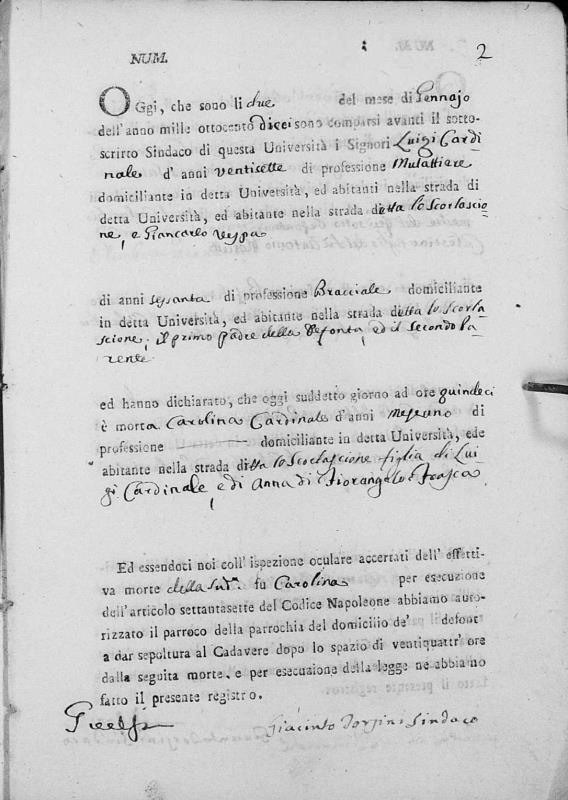 2
NUM.
OGgi, che sono li due del mese di Gennajo
dell'anno mille ottocento dieci sono comparsi avanti il sotto-
scritto Sindaco di questa Università i Signori Luigi Cardi
nale d' anni ventisette di professione Mulattiere
domiciliante in detta Università, ed abitanti nella strada di
detta Università, ed abitante nella strada detta lo Scorlascio
ne, e Giancarlo
di anni sessanta di professione Bracciale domiciliante
in detta Università, ed abitante nella strada detta lo Scorla
scione, il primo padre della defonta, ed il secondo Pa
rente
ed hanno dichiarato, che oggi suddetto giorno ad ore quindeci
è morta Carolina Cardinale d'anni di
professione domiciliante in detta Università, ed e
abitante nella strada detta lo Scorlascione figlia di Lui
gi Cardinale, e di Anna di Fiorangelo Frasca
Ed essendoci noi coll' ispezione oculare accertati dell' effetti-
va morte della sud.ª fu Carolina per esecuzione
dell'articolo settantasette del Codice Napoleone abbiamo auto-
rizzato il parroco della parrochia del domicilio de' defont
a dar sepoltura al Cadavere dopo lo spazio di ventiquattr' ore
dalla seguita morte, e per esecuzione della legge ne abbiamo
fatto il presente registro.
Giacinto Sindaco